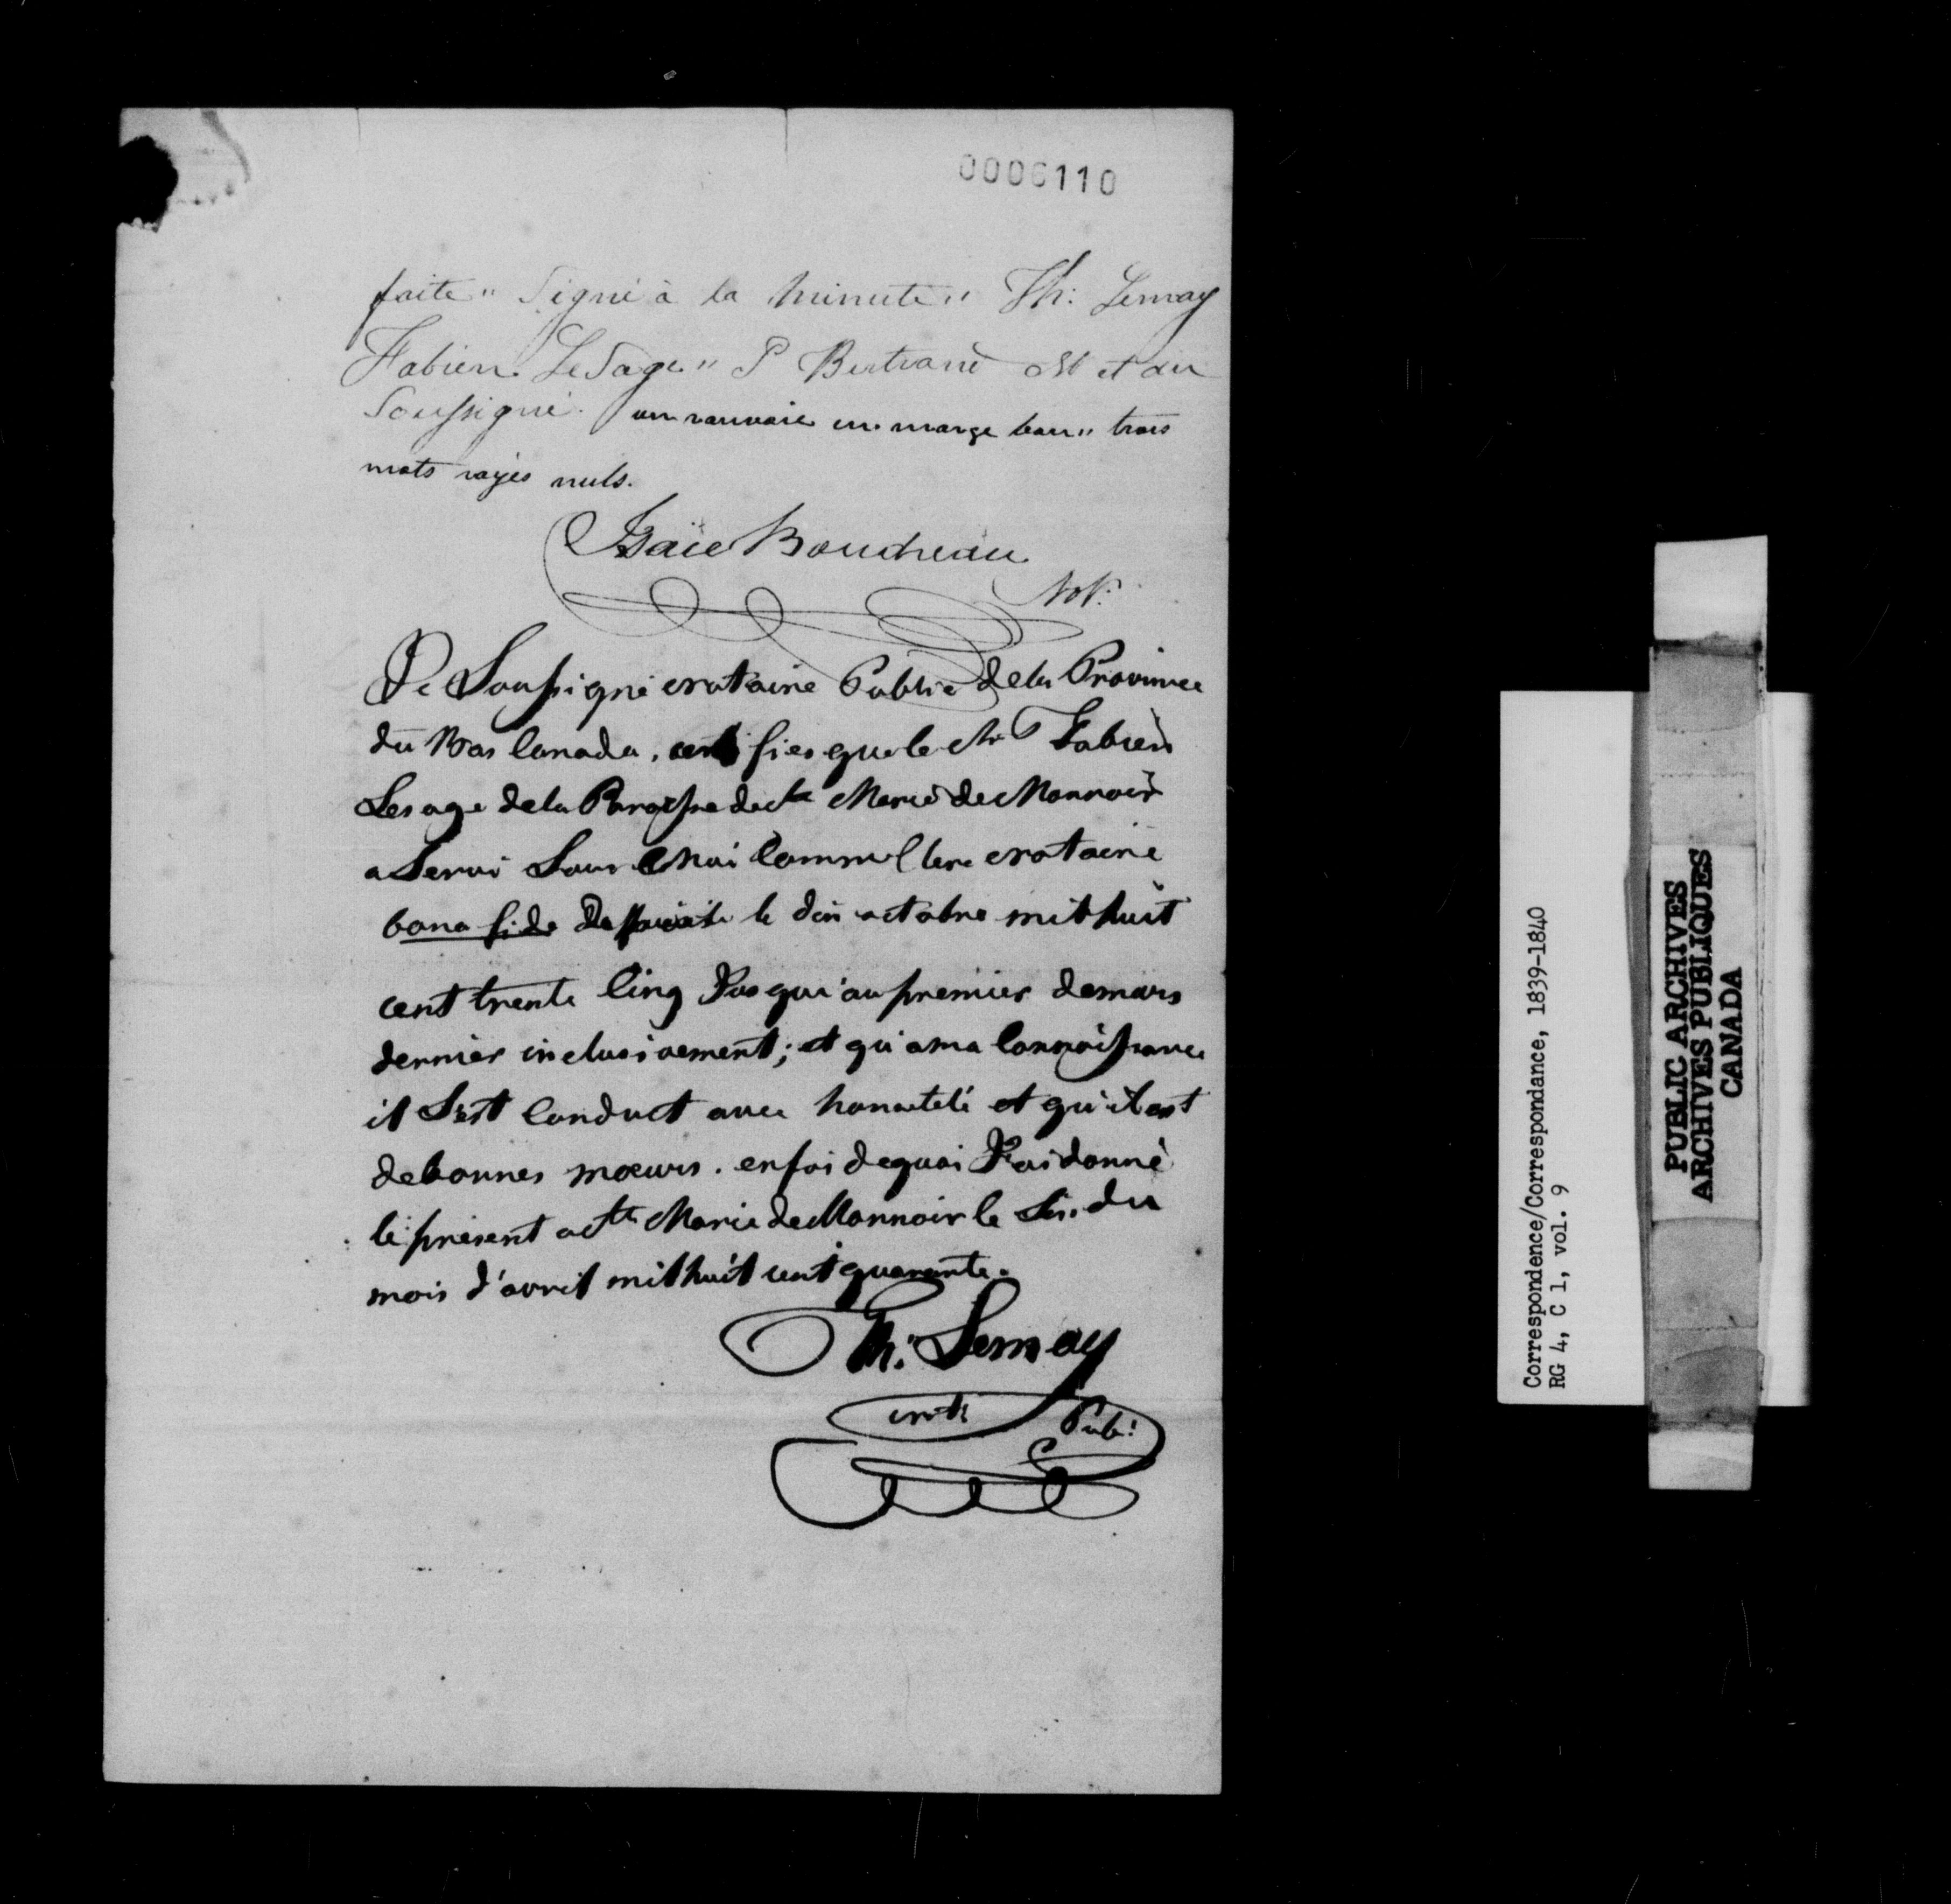 0006110
faite" Signé à la minute" Th: Lemay
Fabien LeSage" P Bertrand et du
Soussigné. un renvoie en marge bon" trois
mots rayés nuls.
Isaïe Boudreau
Not:
Je Soussigné Notaire Public de la Province
du Bas Canada, certifies que le Mr Fabien
Lesage de la Paroisse de Ste Marie de Monnoir
a Servi Sous Moi Comme Clerc Notaire
bona fide depuis le dix octobre mil huit
cent trente Cinq Jusqu'au premier de mars
dernier inclusivement; et qu'a ma Connoissance
il S'est Conduit avec honnêteté et qu'il est
de bonnes mœurs. en foi de quoi J'ai donné
le présent a Ste Marie de Monnoir le Six du
mois d'avril mil huit cent quarante.
Th: Lemay
Not: Pub:
Correspondence/Correspondance, 1839-1840
RG 4, C 1, vol. 9
PUBLIC ARCHIVES
ARCHIVES PUBLIQUES
CANADA